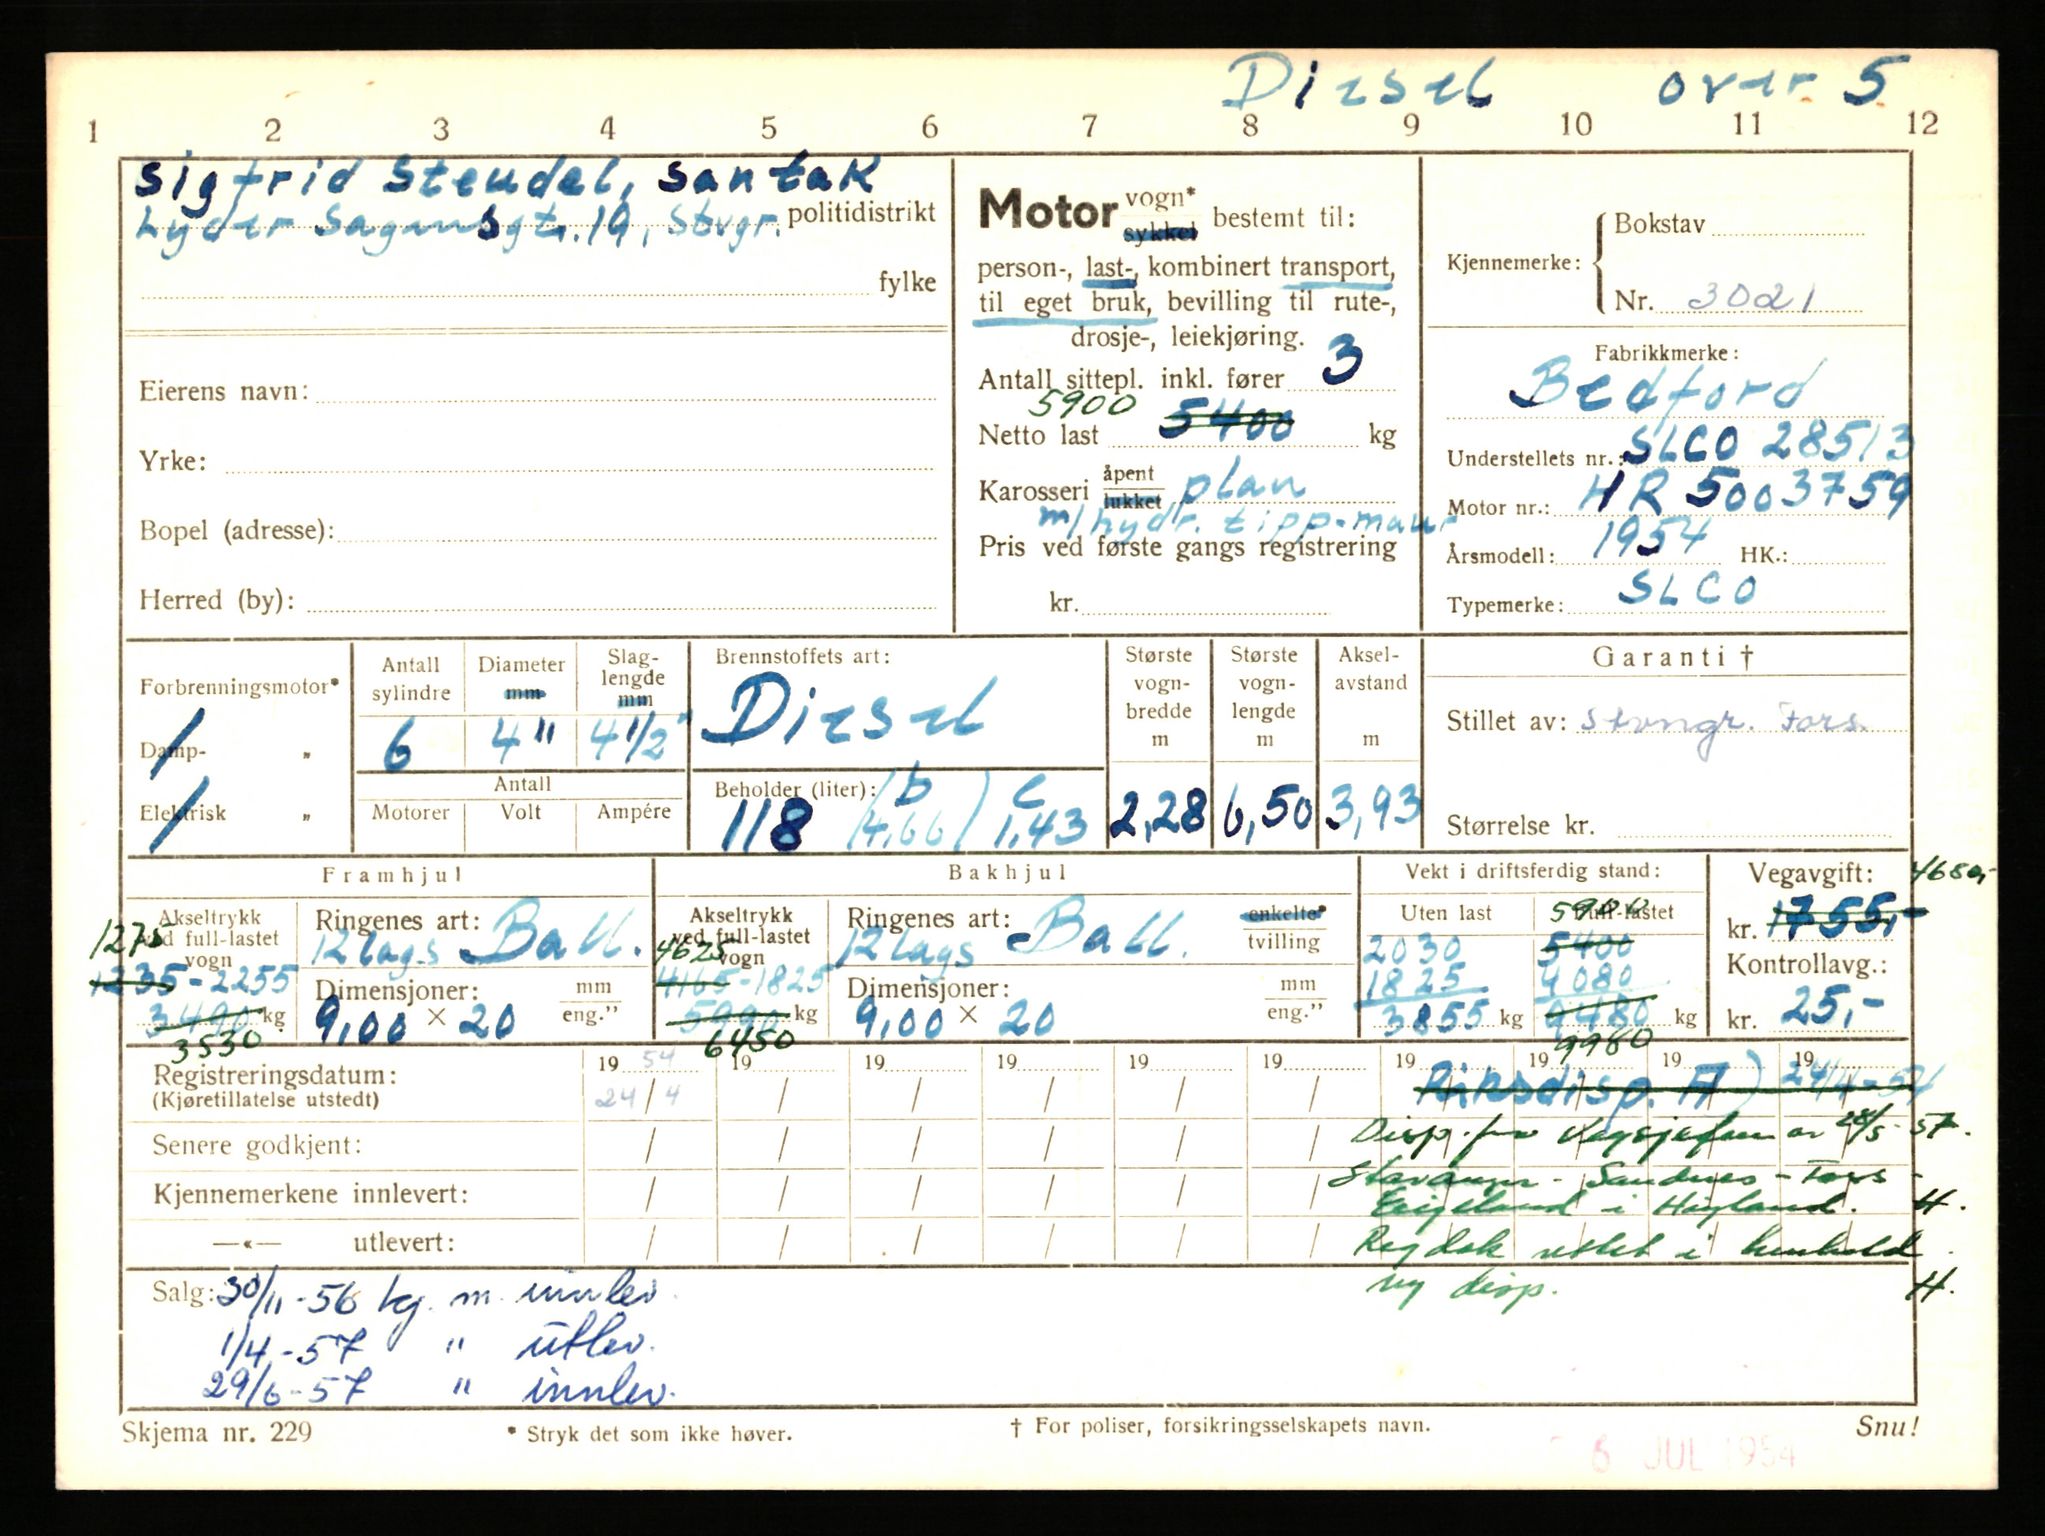 Diesel over 5
1 2 3 4 5 6 7 8 9 10 11 12
Sigfrid Steudel, santak
Lyder Sagensgt. 19, Stvgr. politidistrikt
fylke
Eierens navn:
Yrke:
Bopel (adresse):
Herred (by):
Motor vogn* sykkel bestemt til:
person-, last-, kombinert transport,
til eget bruk, bevilling til rute-,
drosje-, leiekjøring.
Antall sittepl. inkl. fører 3
5900
Netto last 5400 kg
Karosseri åpent lukket plan
m/hydr. tipp-
Pris ved første gangs registrering
kr.
Kjennemerke: Bokstav
Nr. 3021
Fabrikkmerke:
Bedford
Understellets nr.: SLCO 28513
Motor nr.: HR 5003759
Årsmodell: 1954 HK.:
Typemerke: SLCO
Forbrenningsmotor*
Damp- „
Elektrisk „
Antall sylindre 6
Diameter mm 4"
Slaglengde mm 4 1/2"
Antall
Motorer Volt Ampére
Brennstoffets art:
Diesel
Beholder (liter): b c
118 (4,66) 1,43
Største vogn-bredde m 2,28
Største vogn-lengde m 6,50
Aksel-avstand m 3,93
Garanti †
Stillet av: Stvngr. Fors.
Størrelse kr.
Framhjul
Akseltrykk ved full-lastet vogn
1275
1235-2255
3490 kg
3530
Ringenes art: Ball.
12 lags
Dimensjoner: mm eng."
9,00 × 20
Bakhjul
Akseltrykk ved full-lastet vogn
4625
4165-1825
5990 kg
6450
Ringenes art: Ball. enkelte* tvilling
12 lags
Dimensjoner: mm eng."
9,00 × 20
Vekt i driftsferdig stand:
Uten last Full-lastet
5900
2030 5400
1825 4080
3855 kg 9480 kg
9980
Vegavgift: 4680,-
kr. 1755,-
Kontrollavg.:
kr. 25,-
Registreringsdatum: 19 54 19 19 19 19 19 19 19 19 19
(Kjøretillatelse utstedt) 24/4
Riksdisp. A) 24/4-54
Senere godkjent:
Disp. fra Vegsjefen av 28/5-57.
Kjennemerkene innlevert:
Stavanger - Sandnes - Fors -
i Høyland. H.
—«— utlevert:
rettet i henhold
ny disp. H.
Salg: 30/11-56 kj. m. innlev.
1/4-57 " utlev.
29/6-57 " innlev.
Skjema nr. 229
* Stryk det som ikke høver.
† For poliser, forsikringsselskapets navn.
Snu!
6 JUL 1954